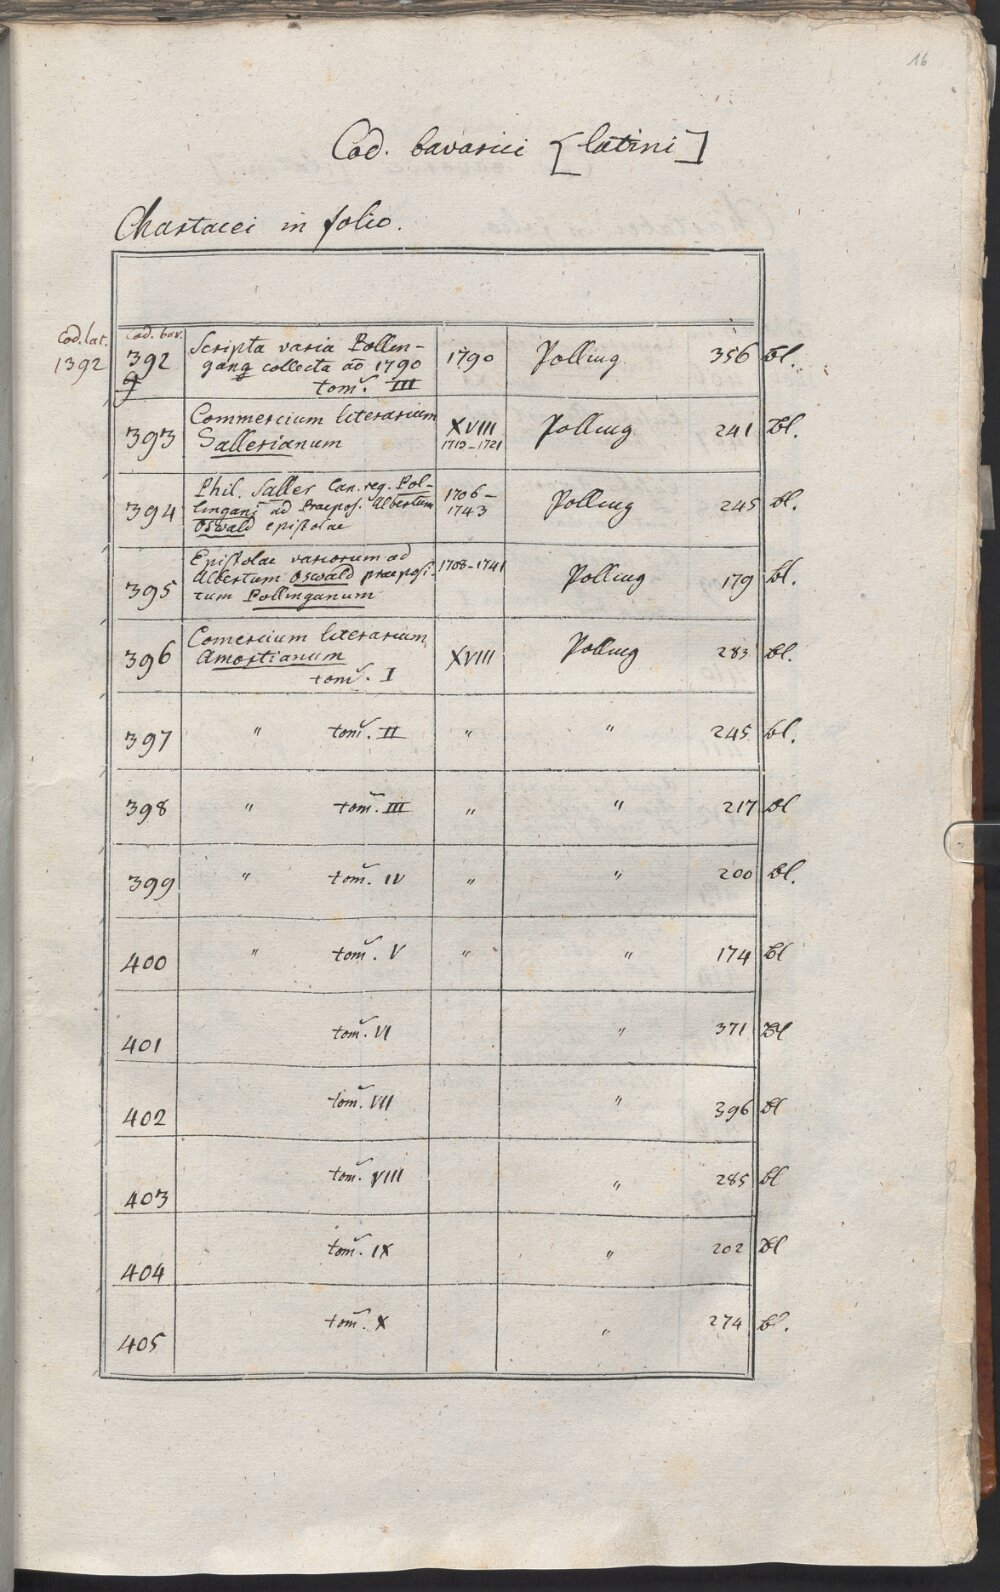 16
Cod. bavarici [latini]
Chartacei in folio.
Cod. lat. 1392
Cod. bav. 392
Scripta varia Pollin-
gana collecta aō 1790
tom. III
1790 Polling 356 Bl.
393 Commercium literarium
Sallerianum
XVIII
1713-1721
Polling 241 Bl.
394 Phil. Saller Can. reg. Pol-
lingani ad Praepos. Albertum
Oswald epistolae
1706-
1743
Polling 245 Bl.
395 Epistolae variorum ad
Albertum Oswald praeposi-
tum Pollinganum
1708-1741 Polling 179 Bl.
396 Comercium literarium
Amortianum
tom. I
XVIII Polling 283 Bl.
397 " tom. II " " 245 Bl.
398 " tom. III " " 217 Bl
399 " tom. IV " " 200 Bl.
400 " tom. V " " 174 Bl
401 tom. VI " 371 Bl
402 tom. VII " 396 Bl
403 tom. VIII " 285 Bl
404 tom. IX " 202 Bl
405 tom. X " 274 Bl.